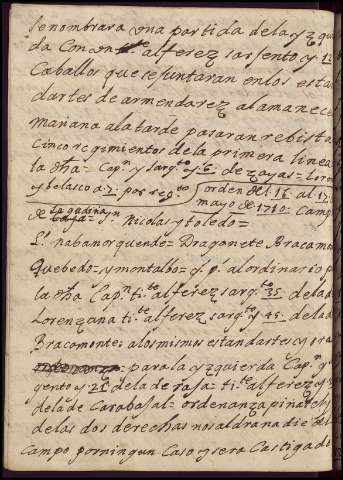 se nombrara una partida de la yzqui
da Con un alferez sarjento y 12
Caballos que se juntaran en los estan
dartes de armendarez al amanecer
mañana a la tarde pasaran rebista
Cinco regimientos de la primera linea
la dha = Capn y sargto y 6 = de zayas = Loren
y belasco a 7 = por regto orden del 16 al 17
mayo de 1710 = Camp
de la gudina y n
Nicolas y toledo =
Dragonete Bracamon
Quebedo = y montalbo = y pa al ordinario p
la dha Capn tite alferez sargto 35 de la de
Lorenzana tite alferez sargto y 45 de la de
Bracomonte = a los mismos estandartes y ora
para la yzquierda Capn
gento y 25 de la de rasa = tite alferez y
de la de Carabajal = ordenanza pinateli
de las dos derechas no saldra nadie del
Campo por ningun Caso y sera Castigado